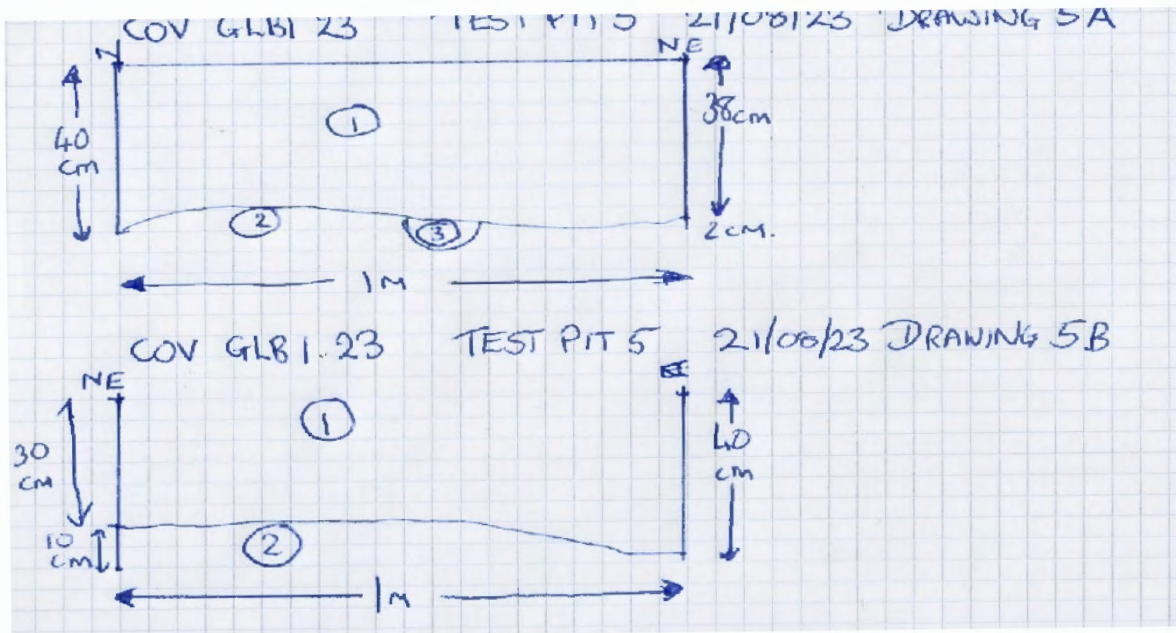 COV GLB1 23 TEST PIT 5 21/08/23 DRAWING 5A
N NE
40 cm
1
38cm
2
3
2cm.
1M
COV GLB1.23 TEST PIT 5 21/08/23 DRAWING 5B
NE
1
30 cm
40 cm
2
10 cm
1M